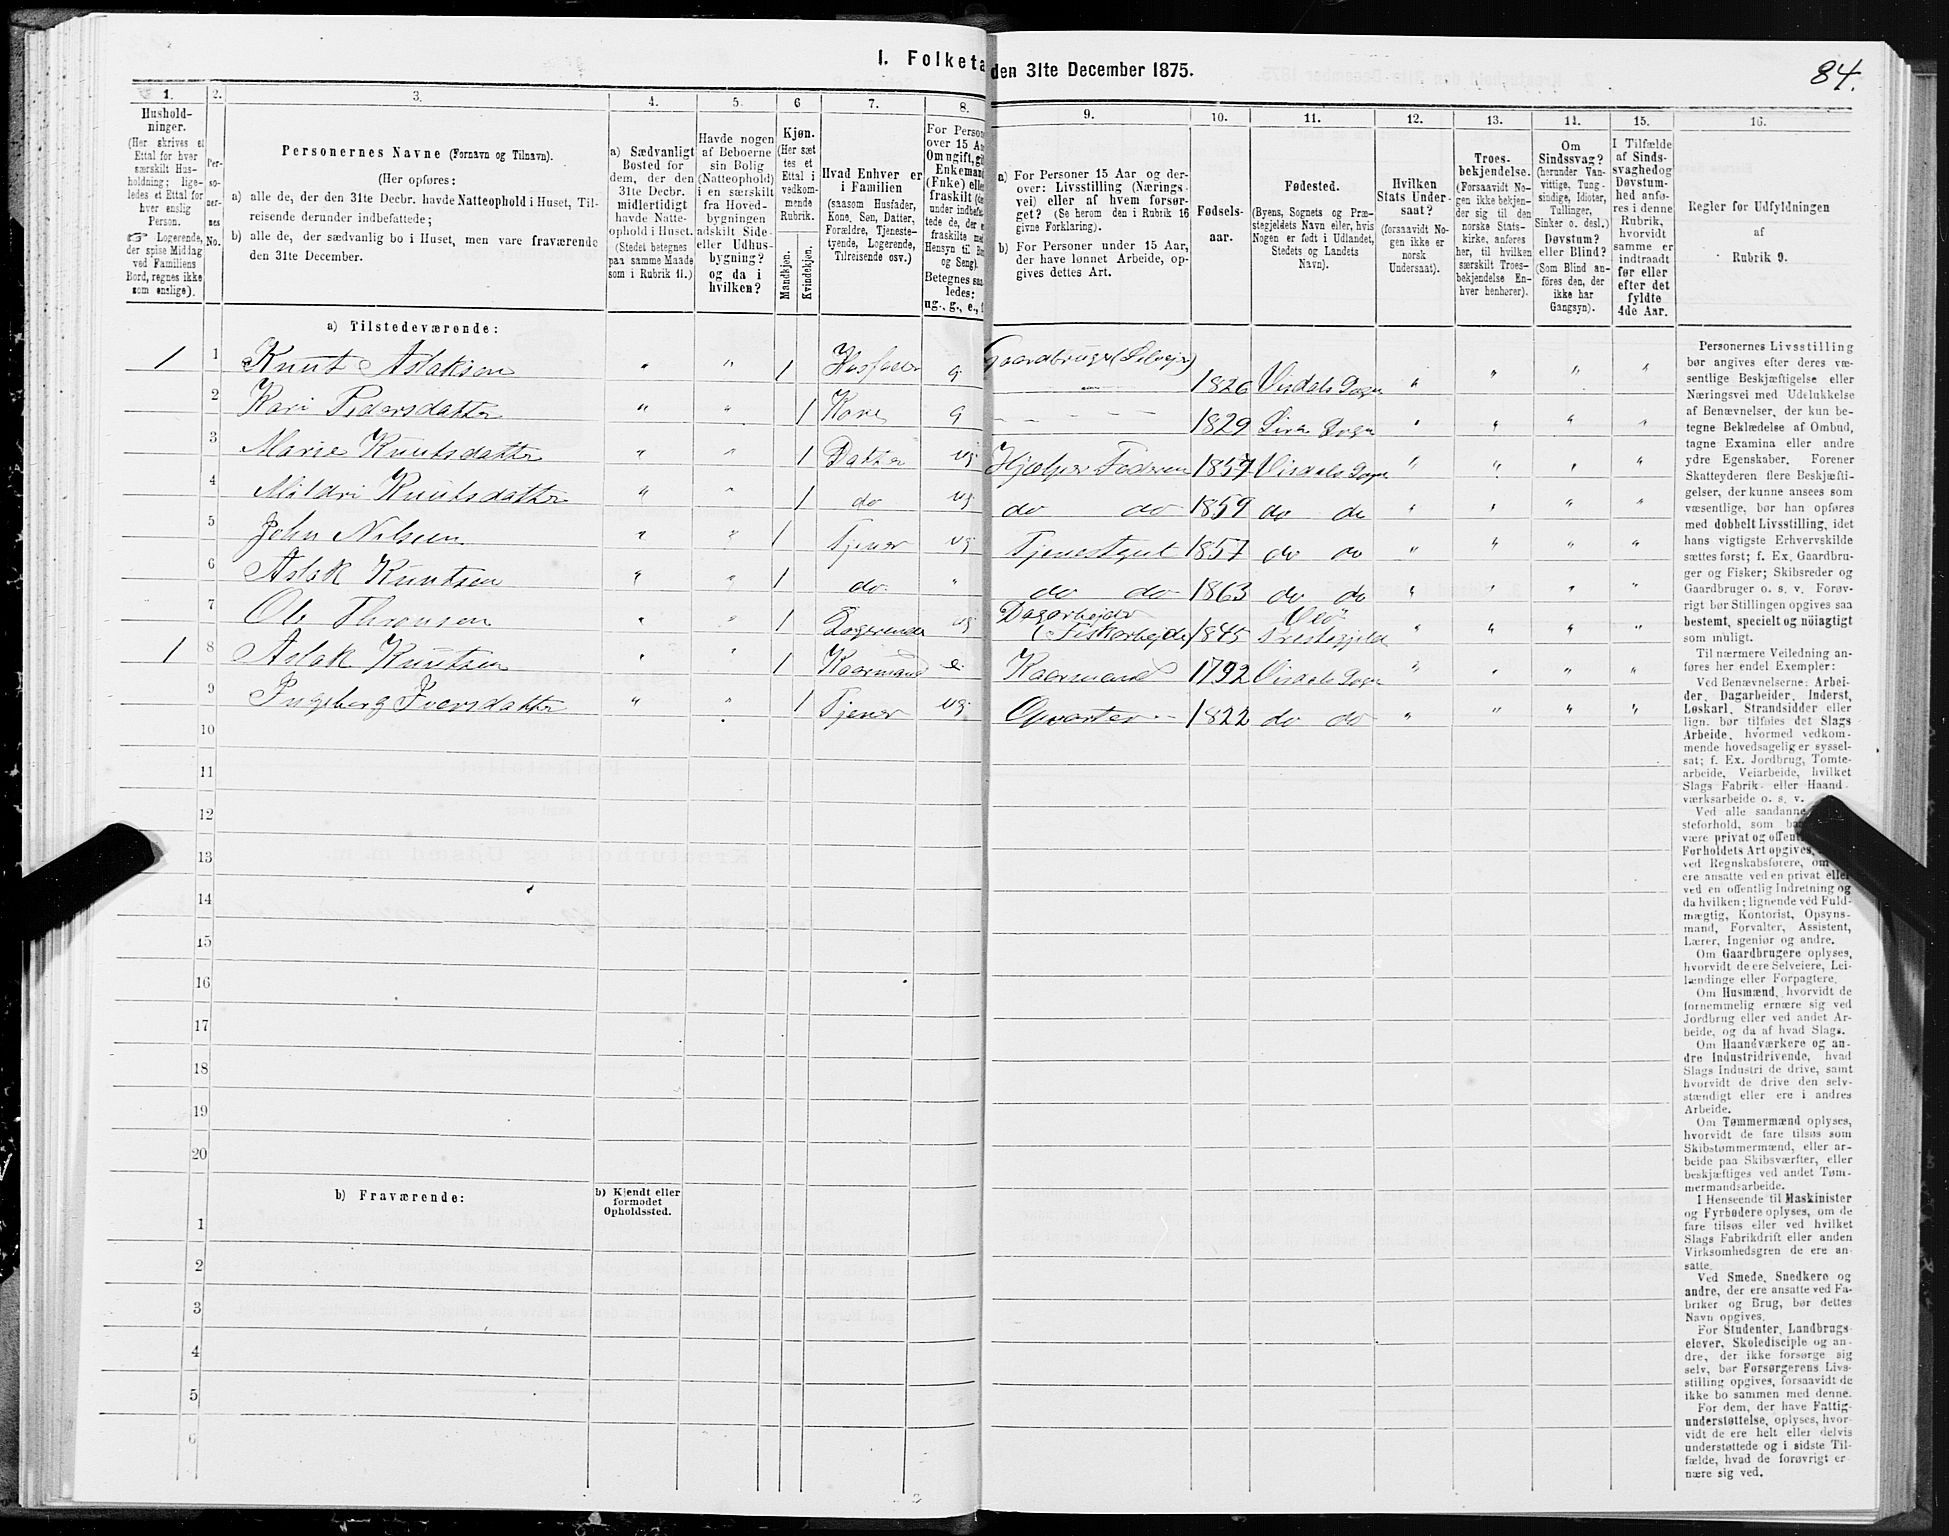 84.
I. Folketa
den 31te December 1875.
1. 2. 3. 4. 5. 6 7. 8. 9. 10. 11. 12. 13. 14. 15. 16.
Hushold-
ninger.
(Her skrives et
Ettal for hver
særskilt Hus-
holdning; lige-
ledes et Ettal for
hver enslig
Person.
☞ Logerende,
der spise Middag
ved Familiens
Bord, regnes ikke
som enslige).
Per-
so-
ner-
nes
No.
Personernes Navne (Fornavn og Tilnavn).
(Her opføres:
a) alle de, der den 31te Decbr. havde Natteophold i Huset, Til-
reisende derunder indbefattede;
b) alle de, der sædvanlig bo i Huset, men vare fraværende
den 31te December.
a) Sædvanligt
Bosted for
dem, der den
31te Decbr.
midlertidigt
havde Natte-
ophold i Huset.
(Stedet betegnes
paa samme Maade
som i Rubrik 11.)
Havde nogen
af Beboerne
sin Bolig
(Natteophold)
i en særskilt
fra Hoved-
bygningen
adskilt Side-
eller Udhus-
bygning?
og da i
hvilken?
Kjøn.
(Her sæt
tes et
Ettal i
vedkom-
mende
Rubrik.
Mandkjøn.
Kvindekjøn.
Hvad Enhver er
i Familien
(saasom Husfader,
Kone, Søn, Datter,
Forældre, Tjeneste-
tyende, Logerende,
Tilreisende osv.)
For Person
over 15 Aa
Om ugift, gif
Enkeman
(Enke) elle
fraskilt (
under indbefa
tede de, der e
fraskilte me
Hensyn til Bo
og Seng).
Betegnes saa
ledes:
ug., g., e.,
a) For Personer 15 Aar og der-
over: Livsstilling (Nærings-
vei) eller af hvem forsør-
get? (Se herom den i Rubrik 16
givne Forklaring).
b) For Personer under 15 Aar,
der have lønnet Arbeide, op-
gives dettes Art.
Fødsels-
aar.
Fødested.
(Byens, Sognets og Præ-
stegjeldets Navn eller, hvis
Nogen er født i Udlandet,
Stedets og Landets
Navn).
Hvilken
Stats Under-
saat?
(forsaavidt No-
gen ikke er
norsk
Undersaat).
Troes-
bekjendelse.
(Forsaavidt No-
gen ikke bekjen-
der sig til den
norske Stats-
kirke, anføres
her, til hvilken
særskilt Troes-
bekjendelse En-
hver henhører).
Om
Sindssvag?
(herunder Van-
vittige, Tung-
sindige, Idioter,
Tullinger,
Sinker o. desl.)
Døvstum?
eller Blind?
(Som Blind an-
føres den, der
ikke har
Gangsyn).
I Tilfælde
af Sinds-
svaghed og
Døvstum-
hed anfø-
res i denne
Rubrik,
hvorvidt
samme er
indtraadt
før eller
efter det
fyldte
4de Aar.
Regler for Udfyldningen
af
Rubrik 9.
a) Tilstedeværende:
1 1 Knut Aslaksen " " 1 Husfader g Gaardbruger (Selveier) 1826 Visdals Sogn " " " "
2 Kari Pedersdatter " " 1 Kone g — — — 1829 Sogn " " " "
3 Marie Knutsdatter " " 1 Datter ug Hjælper Faderen 1857 Visdals Sogn " " " "
4 Mildri Knutsdatter " " 1 do ug do do 1859 do do " " " "
5 John Nilsen " " 1 Tjener ug Tjenestgut 1857 do do " " " "
6 Aslak Knutsen " " 1 do " do do 1863 do do " " " "
7 Ole Thronsen " " 1 Logerende ug Dagarbejder (Fiskarbejde) 1845 Veø Prestegjeld " " " "
1 8 Aslak Knutsen " " 1 Kaarmand e. Kaarmand 1792 Visdals Sogn " " " "
9 Ingeberg Iversdatter " " 1 Tjener ug Opvarter — 1822 do do " " " "
10
11
12
13
14
15
16
17
18
19
20
b) Fraværende:
b) Kjendt eller
formodet
Opholdssted.
1
2
3
4
5
6
Personernes Livsstilling
bør angives efter deres væ-
sentlige Beskjæftigelse eller
Næringsvei med Udelukkelse
af Benævnelser, der kun be-
tegne Beklædelse af Ombud,
tagne Examina eller andre
ydre Egenskaber. Forener
Skatteyderen flere Beskjæfti-
gelser, der kunne ansees som
væsentlige, bør han opføres
med dobbelt Livsstilling, idet
hans vigtigste Erhvervskilde
sættes først; f. Ex. Gaardbru-
ger og Fisker; Skibsreder og
Gaardbruger o. s. v. Forøv-
rigt bør Stillingen opgives saa
bestemt, specielt og nøiagtigt
som muligt.
Til nærmere Veiledning an-
føres her endel Exempler:
Ved Benævnelserne: Arbei-
der, Dagarbeider, Inderst,
Løskarl, Strandsidder eller
lign. bør tilføies det Slags
Arbeide, hvormed vedkom-
mende hovedsagelig er syssel-
sat; f. Ex. Jordbrug, Tomte-
arbeide, Veiarbeide, hvilket
Slags Fabrik- eller Haand-
værksarbeide o. s. v.
Ved alle saadanne
steforhold, som ba
være privat og offent
Forholdets Art opgives,
ved Regnskabsførere, om
ere ansatte ved en privat eller
ved en offentlig Indretning og
da hvilken; lignende ved Fuld-
mægtig, Kontorist, Opsyns-
mand, Forvalter, Assistent,
Lærer, Ingeniør og andre.
Om Gaardbrugere oplyses,
hvorvidt de ere Selveiere, Lei-
lændinge eller Forpagtere.
Om Husmænd, hvorvidt de
fornemmelig ernære sig ved
Jordbrug eller ved andet Ar-
beide, og da af hvad Slags.
Om Haandværkere og an-
dre Industridrivende, hvad
Slags Industri de drive, samt
hvorvidt de drive den selv-
stændigt eller ere i andres
Arbeide.
Om Tømmermænd oplyses,
hvorvidt de fare tilsøs som
Skibstømmermænd, eller ar-
beide paa Skibsværfter, eller
beskjæftiges ved andet Tøm-
mermandsarbeide.
I Henseende til Maskinister
og Fyrbødere oplyses, om de
fare tilsøs eller ved hvilket
Slags Fabrikdrift eller anden
Virksomhedsgren de ere an-
satte.
Ved Smede, Snedkere og
andre, der ere ansatte ved Fa-
briker og Brug, bør dettes
Navn opgives.
For Studenter, Landbrugs-
elever, Skoledisciple og an-
dre, der ikke forsørge sig
selv, bør Forsørgerens Livs-
stilling opgives, forsaavidt de
ikke bo sammen med denne.
For dem, der have Fattig-
understøttelse, oplyses, hvor-
vidt de ere helt eller delvis
understøttede og i sidste Til-
fælde, hvad de forøvrigt er-
nære sig ved.